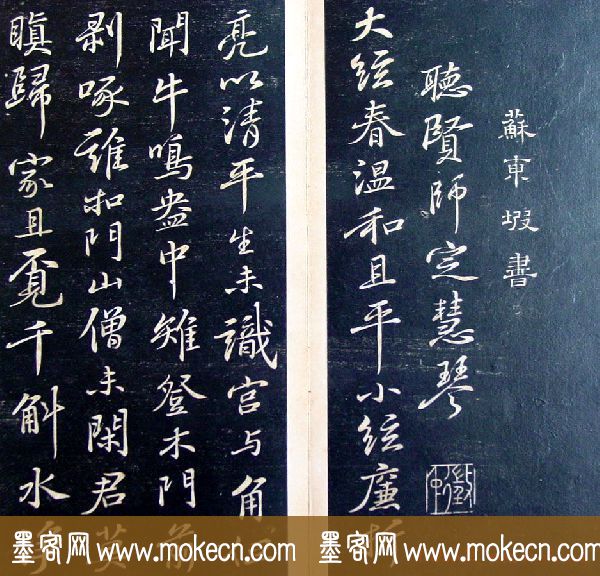 蘇東坡書
聽賢師定慧琴
大絃春温和且平小絃廉折
亮以清平生未識宫与角
聞牛鳴盎中雉登木門前
剥啄誰扣門山僧未閑君英
瞋歸家且覓千斛水
墨客网 www.mokecn.com 墨客网 www.mokecn.com